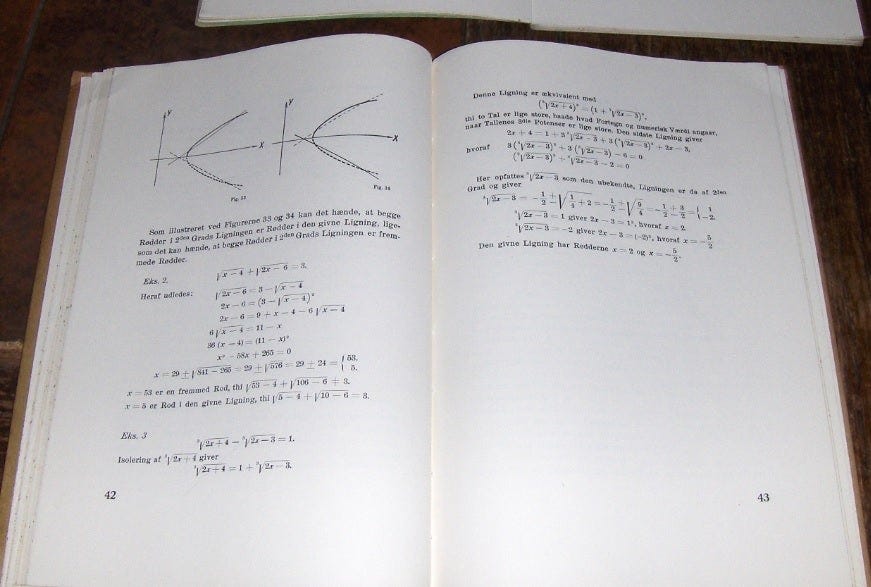 y
x
y
x
Fig. 33
Fig. 34
Som illustreret ved Figurerne 33 og 34 kan det hænde, at begge
Rødder i 2den Grads Ligningen er Rødder i den givne Ligning, lige-
som det kan hænde, at begge Rødder i 2den Grads Ligningen er frem-
mede Rødder.
Eks. 2.
√x − 4 + √2x − 6 = 3.
Heraf udledes: √2x − 6 = 3 − √x − 4
2x − 6 = (3 − √x − 4)²
2x − 6 = 9 + x − 4 − 6√x − 4
6√x − 4 = 11 − x
36 (x − 4) = (11 − x)²
x² − 58x + 265 = 0
x = 29 ± √841 − 265 = 29 ± √576 = 29 ± 24 = { 53. 5.
x = 53 er en fremmed Rod, thi √53 − 4 + √106 − 6 ≠ 3.
x = 5 er Rod i den givne Ligning, thi √5 − 4 + √10 − 6 = 3.
Eks. 3
³√2x + 4 − ³√2x − 3 = 1.
Isolering af ³√2x + 4 giver
³√2x + 4 = 1 + ³√2x − 3.
42
Denne Ligning er ækvivalent med
(³√2x + 4)³ = (1 + ³√2x − 3)³,
thi to Tal er lige store, baade hvad Fortegn og numerisk Værdi angaar,
naar Tallenes 3die Potenser er lige store. Den sidste Ligning giver
2x + 4 = 1 + 3 ³√2x − 3 + 3 (³√2x − 3)² + 2x − 3,
hvoraf 3 (³√2x − 3)² + 3 (³√2x − 3) − 6 = 0
(³√2x − 3)² + ³√2x − 3 − 2 = 0
Her opfattes ³√2x − 3 som den ubekendte, Ligningen er da af 2den
Grad og giver
³√2x − 3 = − 1/2 ± √1/4 + 2 = − 1/2 ± √9/4 = − 1/2 ± 3/2 = { 1 −2.
³√2x − 3 = 1 giver 2x − 3 = 1³, hvoraf x = 2.
³√2x − 3 = −2 giver 2x − 3 = (−2)³, hvoraf x = − 5/2
Den givne Ligning har Rødderne x = 2 og x = − 5/2.
43